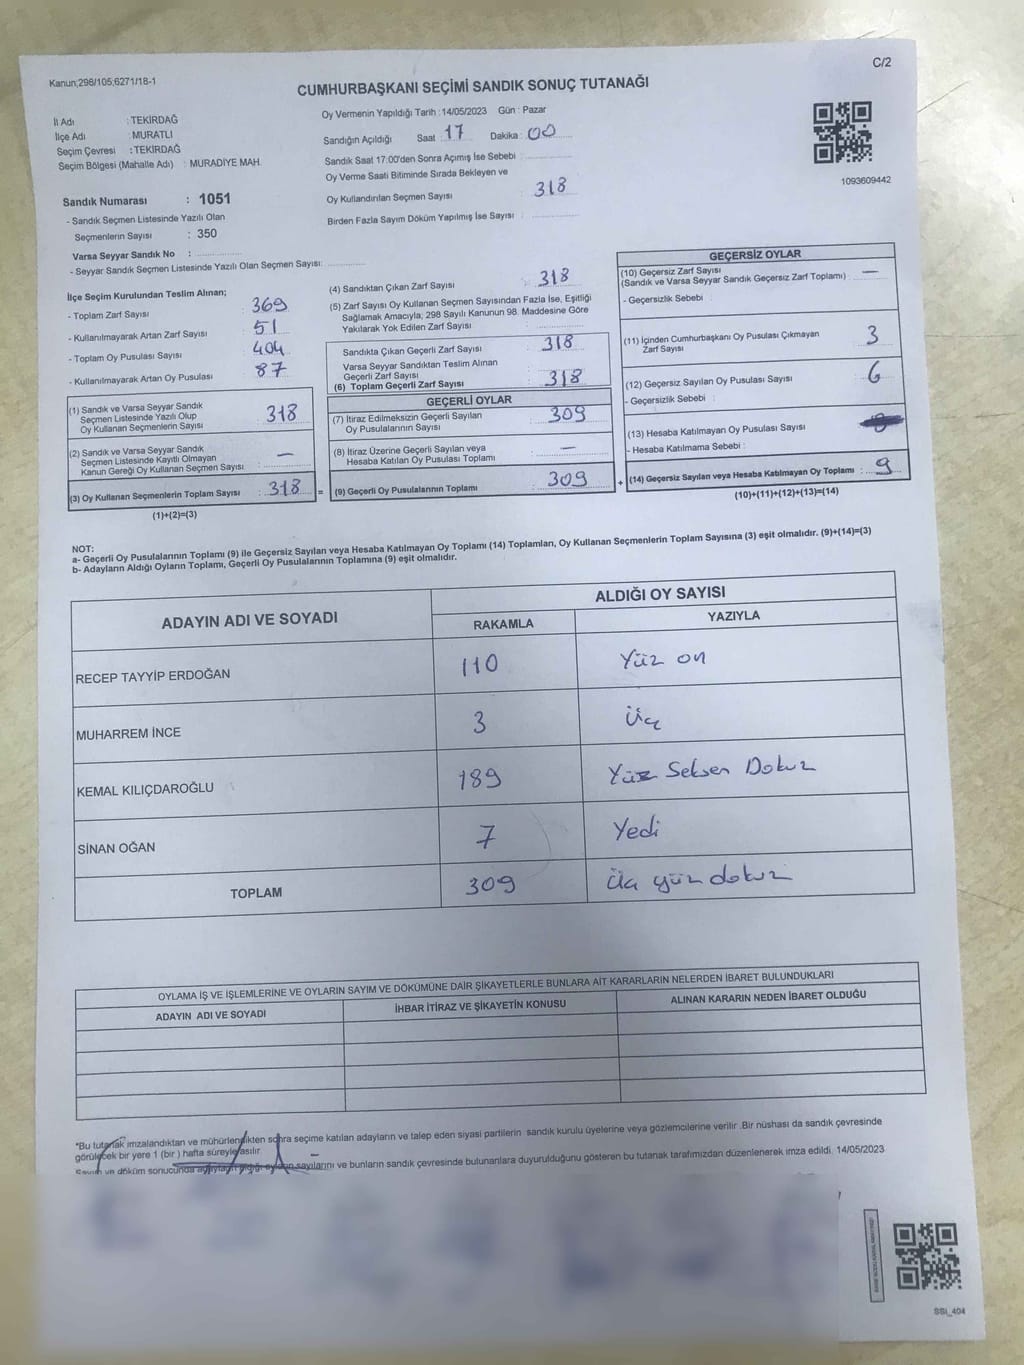 Kanun;298/105;6271/18-1
C/2
CUMHURBAŞKANI SEÇİMİ SANDIK SONUÇ TUTANAĞI
İl Adı : TEKİRDAĞ
İlçe Adı : MURATLI
Seçim Çevresi : TEKİRDAĞ
Seçim Bölgesi (Mahalle Adı) : MURADİYE MAH.
Oy Vermenin Yapıldığı Tarih : 14/05/2023 Gün : Pazar
Sandığın Açıldığı Saat : 17 Dakika : 00
Sandık Saat 17:00'den Sonra Açımış İse Sebebi :
Oy Verme Saati Bitiminde Sırada Bekleyen ve
Oy Kullandırılan Seçmen Sayısı : 318
Birden Fazla Sayım Döküm Yapılmış İse Sayısı :
1093609442
Sandık Numarası : 1051
- Sandık Seçmen Listesinde Yazılı Olan
Seçmenlerin Sayısı : 350
Varsa Seyyar Sandık No :
- Seyyar Sandık Seçmen Listesinde Yazılı Olan Seçmen Sayısı:
İlçe Seçim Kurulundan Teslim Alınan;
- Toplam Zarf Sayısı : 369
- Kullanılmayarak Artan Zarf Sayısı : 51
- Toplam Oy Pusulası Sayısı : 404
- Kullanılmayarak Artan Oy Pusulası : 87
(1) Sandık ve Varsa Seyyar Sandık
Seçmen Listesinde Yazılı Olup
Oy Kullanan Seçmenlerin Sayısı : 318
(2) Sandık ve Varsa Seyyar Sandık
Seçmen Listesinde Kayıtlı Olmayan
Kanun Gereği Oy Kullanan Seçmen Sayısı : —
(3) Oy Kullanan Seçmenlerin Toplam Sayısı : 318 =
(1)+(2)=(3)
(4) Sandıktan Çıkan Zarf Sayısı : 318
(5) Zarf Sayısı Oy Kullanan Seçmen Sayısından Fazla İse, Eşitliği
Sağlamak Amacıyla; 298 Sayılı Kanunun 98. Maddesine Göre
Yakılarak Yok Edilen Zarf Sayısı :
Sandıkta Çıkan Geçerli Zarf Sayısı : 318
Varsa Seyyar Sandıktan Teslim Alınan
Geçerli Zarf Sayısı
(6) Toplam Geçerli Zarf Sayısı : 318
GEÇERLİ OYLAR
(7) İtiraz Edilmeksizin Geçerli Sayılan
Oy Pusulalarının Sayısı : 309
(8) İtiraz Üzerine Geçerli Sayılan veya
Hesaba Katılan Oy Pusulası Toplamı : —
(9) Geçerli Oy Pusulalarının Toplamı : 309 +
GEÇERSİZ OYLAR
(10) Geçersiz Zarf Sayısı : —
(Sandık ve Varsa Seyyar Sandık Geçersiz Zarf Toplamı)
- Geçersizlik Sebebi :
(11) İçinden Cumhurbaşkanı Oy Pusulası Çıkmayan
Zarf Sayısı : 3
(12) Geçersiz Sayılan Oy Pusulası Sayısı : 6
- Geçersizlik Sebebi :
(13) Hesaba Katılmayan Oy Pusulası Sayısı
- Hesaba Katılmama Sebebi :
(14) Geçersiz Sayılan veya Hesaba Katılmayan Oy Toplamı : 9
(10)+(11)+(12)+(13)=(14)
NOT:
a- Geçerli Oy Pusulalarının Toplamı (9) ile Geçersiz Sayılan veya Hesaba Katılmayan Oy Toplamı (14) Toplamları, Oy Kullanan Seçmenlerin Toplam Sayısına (3) eşit olmalıdır. (9)+(14)=(3)
b- Adayların Aldığı Oyların Toplamı, Geçerli Oy Pusulalarının Toplamına (9) eşit olmalıdır.
ADAYIN ADI VE SOYADI
ALDIĞI OY SAYISI
RAKAMLA YAZIYLA
RECEP TAYYİP ERDOĞAN 110 Yüz on
MUHARREM İNCE 3 Üç
KEMAL KILIÇDAROĞLU 189 Yüz Seksen Dokuz
SİNAN OĞAN 7 Yedi
TOPLAM 309 Üç yüz dokuz
OYLAMA İŞ VE İŞLEMLERİNE VE OYLARIN SAYIM VE DÖKÜMÜNE DAİR ŞİKAYETLERLE BUNLARA AİT KARARLARIN NELERDEN İBARET BULUNDUKLARI
ADAYIN ADI VE SOYADI İHBAR İTİRAZ VE ŞİKAYETİN KONUSU ALINAN KARARIN NEDEN İBARET OLDUĞU
*Bu tutanak imzalandıktan ve mühürlendikten sonra seçime katılan adayların ve talep eden siyasi partilerin sandık kurulu üyelerine veya gözlemcilerine verilir .Bir nüshası da sandık çevresinde
görülecek bir yere 1 (bir ) hafta süreyle asılır.
Sayım ve döküm sonucunda oy sayılarını ve bunların sandık çevresinde bulunanlara duyurulduğunu gösteren bu tutanak tarafımızdan düzenlenerek imza edildi. 14/05/2023
SSİ_404